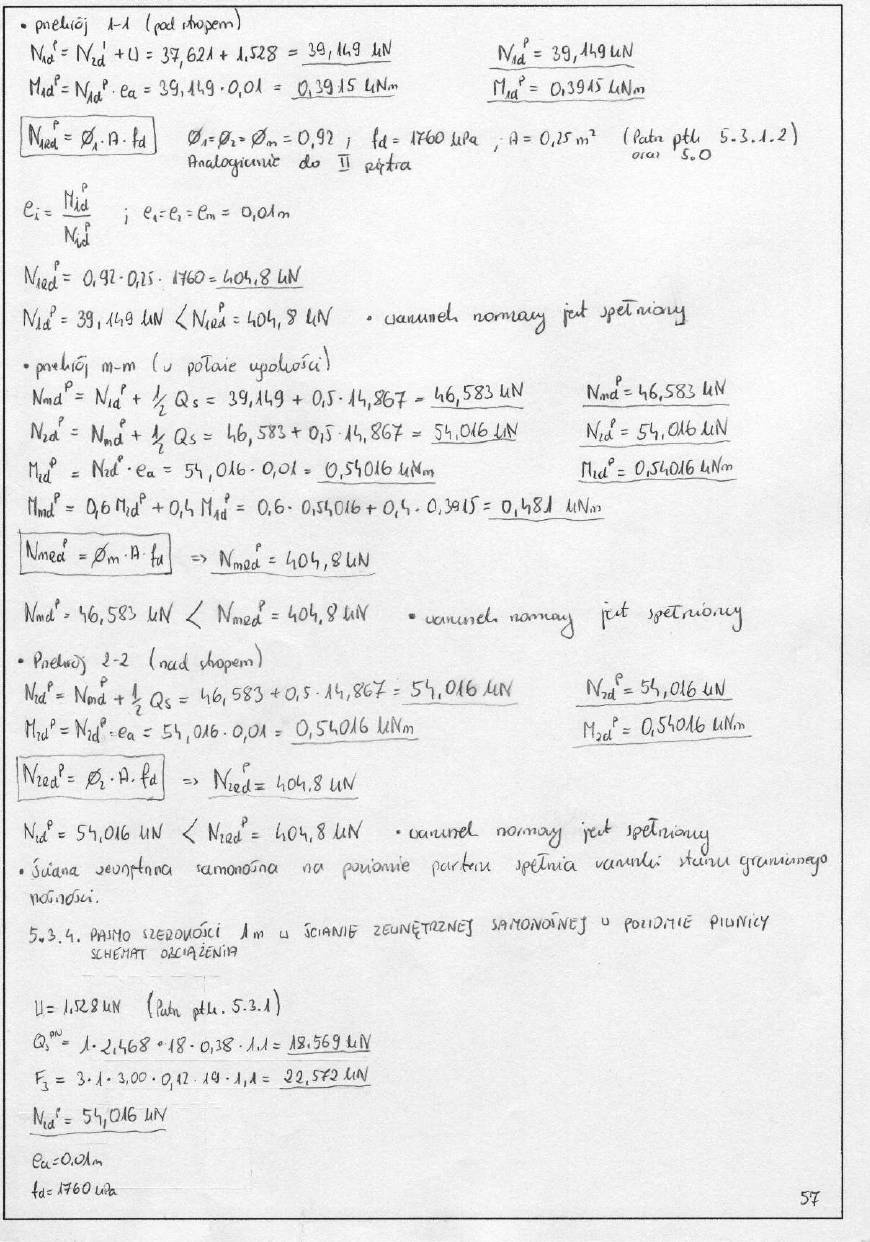 • przekrój 1-1 (pod stropem)
N₁dᴾ = N₂dᴵ + U = 37,621 + 1,528 = 39,149 kN N₁dᴾ = 39,149 kN
M₁dᴾ = N₁dᴾ · ea = 39,149 · 0,01 = 0,3915 kNm M₁dᴾ = 0,3915 kNm
N₁Rdᴾ = Ø₁ · A · fd Ø₁ = Ø₂ = Øm = 0,92 ; fd = 1760 kPa ; A = 0,25 m² (Patrz pkt. 5.3.1.2)
Analogicznie do II piętra oraz 5.0
ei = Midᴾ / Nidᴾ ; e₁ = e₂ = em = 0,01m
N₁Rdᴾ = 0,92 · 0,25 · 1760 = 404,8 kN
N₁dᴾ = 39,149 kN < N₁Rdᴾ = 404,8 kN • warunek normowy jest spełniony
• przekrój m-m (w połowie wysokości)
Nmdᴾ = N₁dᴾ + 1/2 Qs = 39,149 + 0,5 · 14,867 = 46,583 kN Nmdᴾ = 46,583 kN
N₂dᴾ = Nmdᴾ + 1/2 Qs = 46,583 + 0,5 · 14,867 = 54,016 kN N₂dᴾ = 54,016 kN
M₂dᴾ = N₂dᴾ · ea = 54,016 · 0,01 = 0,54016 kNm M₂dᴾ = 0,54016 kNm
Mmdᴾ = 0,6 M₂dᴾ + 0,4 M₁dᴾ = 0,6 · 0,54016 + 0,4 · 0,3915 = 0,481 kNm
NmRdᴾ = Øm · A · fd => NmRdᴾ = 404,8 kN
Nmdᴾ = 46,583 kN < NmRdᴾ = 404,8 kN • warunek normowy jest spełniony
• Przekrój 2-2 (nad stropem)
N₂dᴾ = Nmdᴾ + 1/2 Qs = 46,583 + 0,5 · 14,867 = 54,016 kN N₂dᴾ = 54,016 kN
M₂dᴾ = N₂dᴾ · ea = 54,016 · 0,01 = 0,54016 kNm M₂dᴾ = 0,54016 kNm
N₂Rdᴾ = Ø₂ · A · fd => N₂Rdᴾ = 404,8 kN
N₂dᴾ = 54,016 kN < N₂Rdᴾ = 404,8 kN • warunek normowy jest spełniony
• Ściana zewnętrzna samonośna na poziomie parteru spełnia warunki stanu granicznego
nośności.
5.3.4. PASMO SZEROKOŚCI 1m W ŚCIANIE ZEWNĘTRZNEJ SAMONOŚNEJ W POZIOMIE PIWNICY
SCHEMAT OBCIĄŻENIA
U = 1,528 kN (Patrz pkt. 5.3.1)
Qsᴾᴺ = 1 · 2,468 · 18 · 0,38 · 1,1 = 18,569 kN
F₃ = 3 · 1 · 3,00 · 0,12 · 19 · 1,1 = 22,572 kN
N₂dᴾ = 54,016 kN
ea = 0,01m
fd = 1760 kPa
57